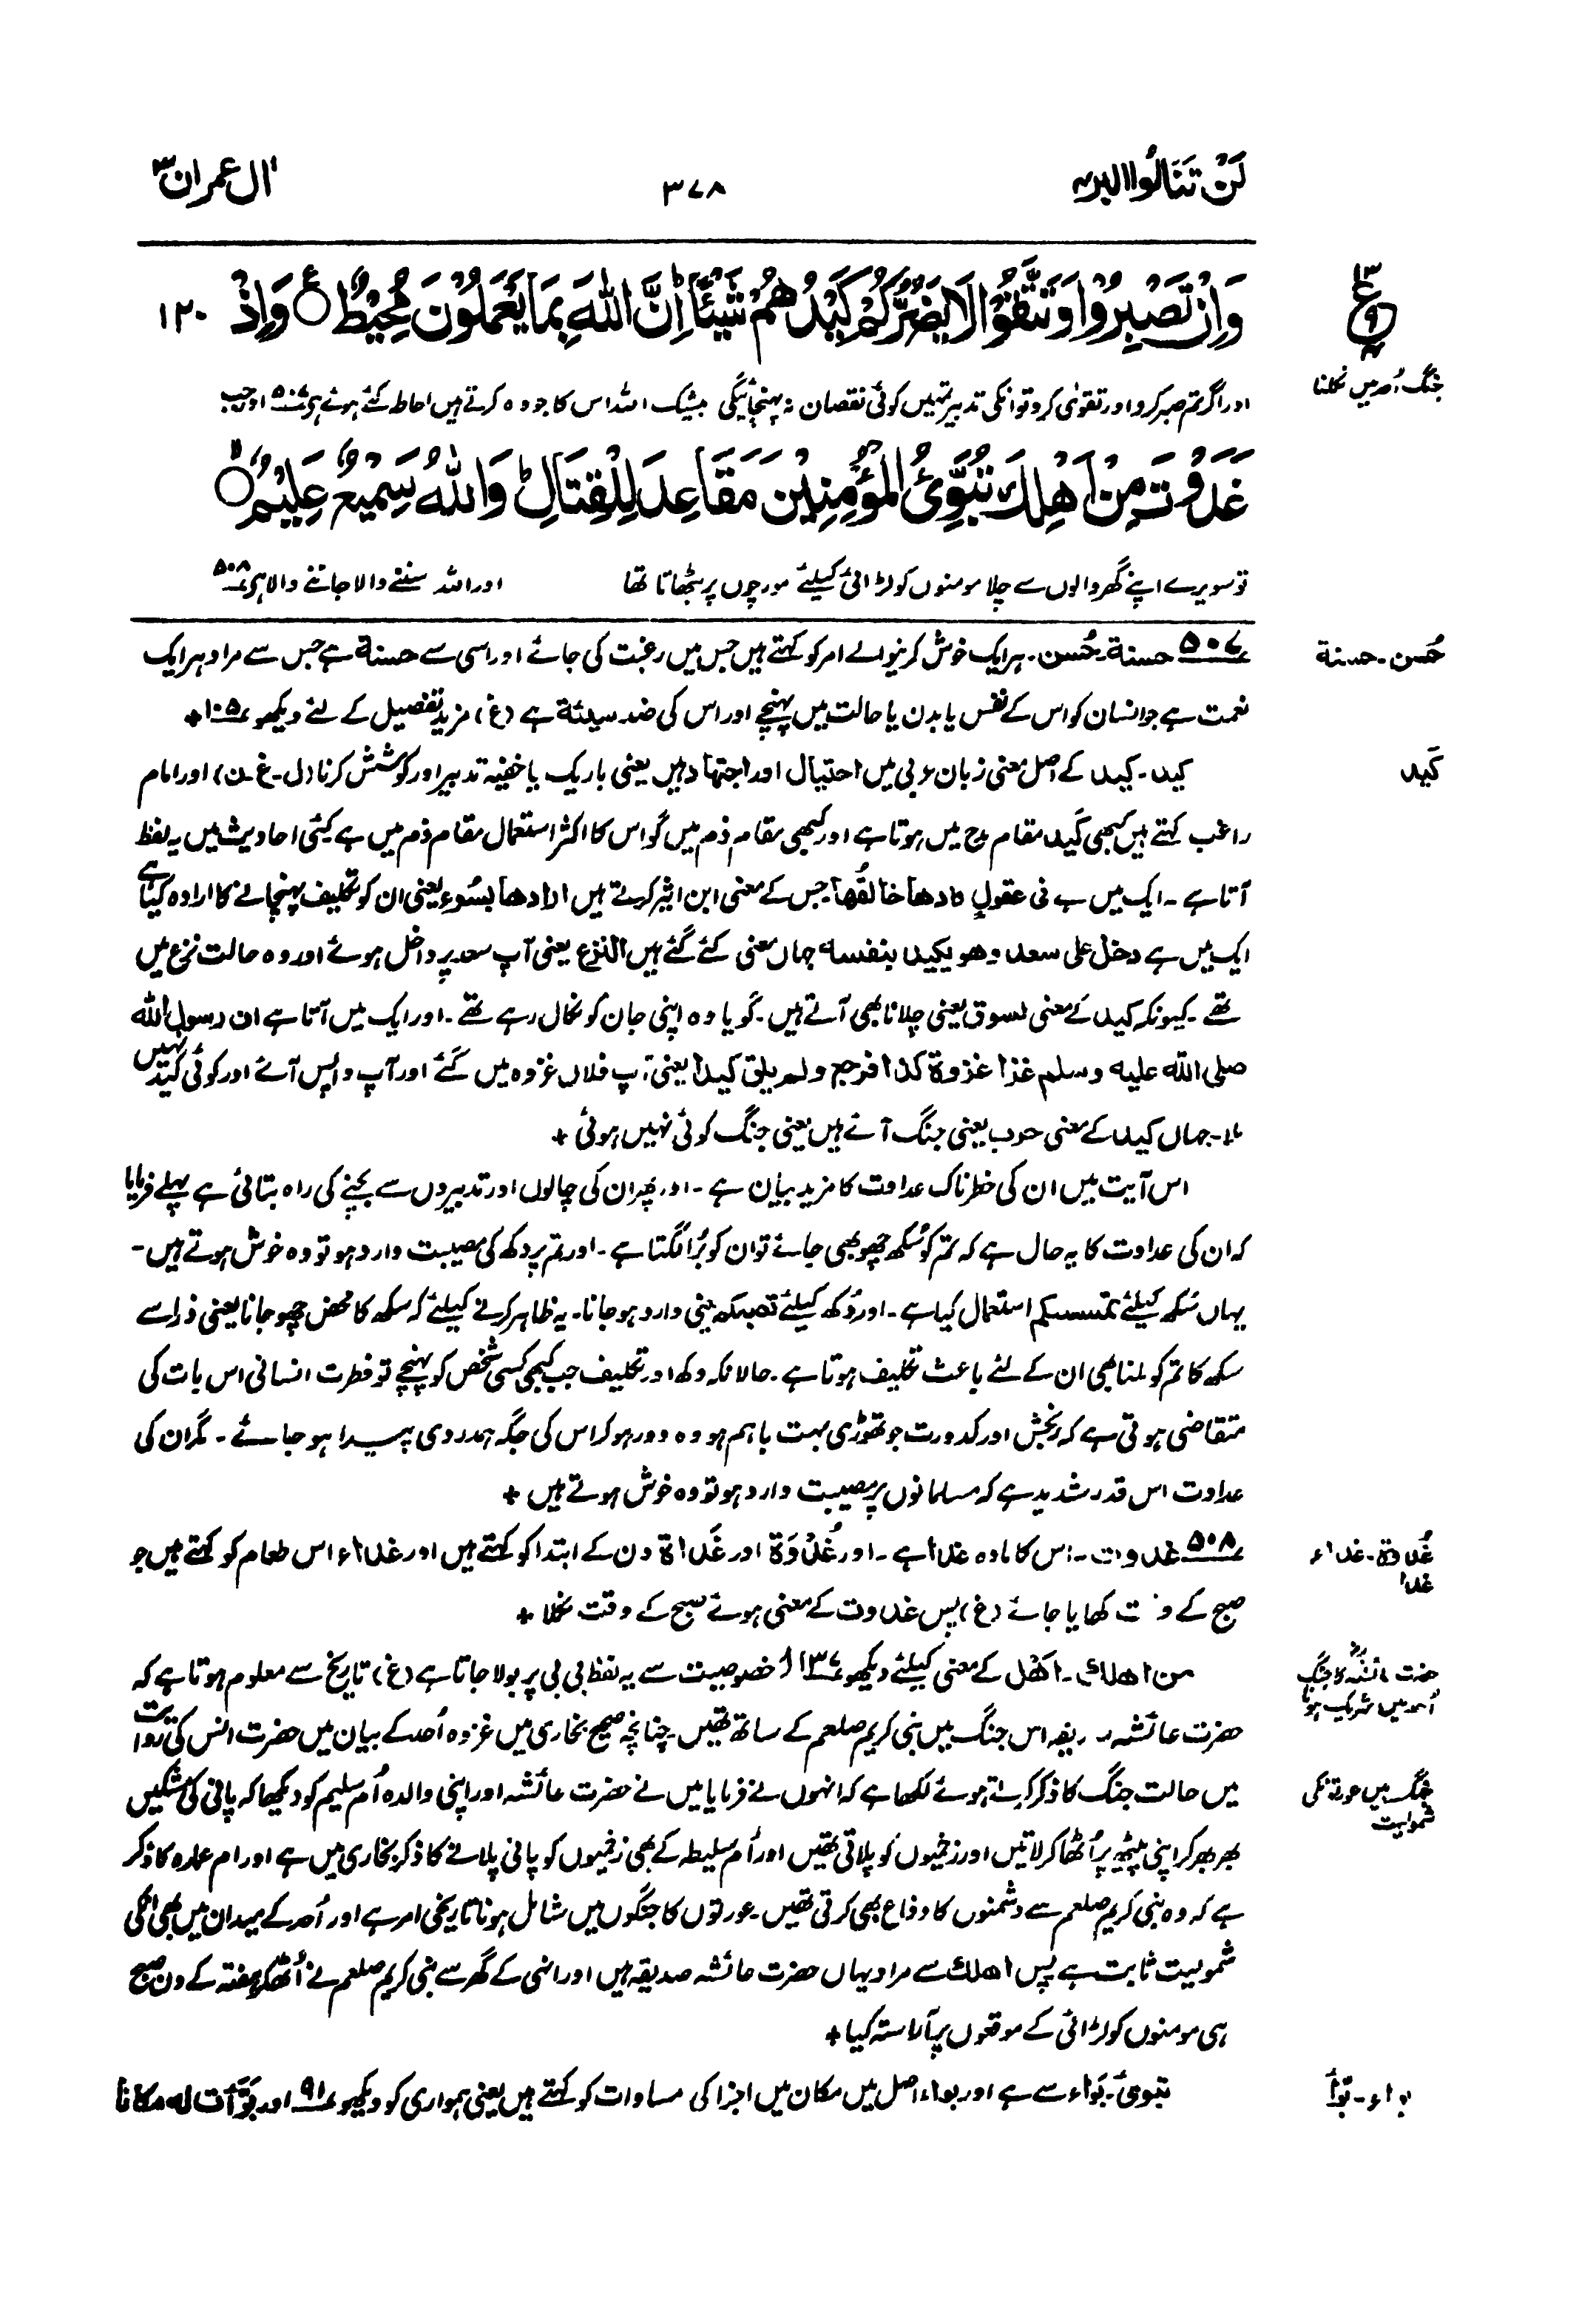 لَنْ تَنَالُوا البر ۴
۳۷۸
اٰل عمران ۳
وَاِنْ تَصْبِرُوْا وَتَتَّقُوْا لَا يَضُرُّكُمْ كَيْدُهُمْ شَيْئًا ؕ اِنَّ اللّٰهَ بِمَا يَعْمَلُوْنَ مُحِيْطٌ ۝ وَاِذْ
۱۲۰
جنگ اُحد میں نکلنا
اور اگر تم صبر کرو اور تقویٰ کرو تو انکی تدبیر تمہیں کوئی نقصان نہ پہنچائیگی بیشک اللہ اس کا جو وہ کرتے ہیں احاطہ کئے ہوئے ہے ۵۰۷ اور جب
غَدَوْتَ مِنْ اَهْلِكَ تُبَوِّئُ الْمُؤْمِنِيْنَ مَقَاعِدَ لِلْقِتَالِ ؕ وَاللّٰهُ سَمِيْعٌ عَلِيْمٌ ۝
تو سویرے اپنے گھر والوں سے چلا مومنوں کو لڑائی کیلئے مورچوں پر بٹھاتا تھا اور اللہ سننے والا جاننے والا ہے ۵۰۸
حُسن۔ حسنة
۵۰۷ حسنة۔ حُسن۔ ہر ایک خوش کرنیوالے امر کو کہتے ہیں جس میں رغبت کی جائے اور اسی سے حسنة ہے جس سے مراد ہر ایک
نعمت ہے جو انسان کو اس کے نفس یا بدن یا حالت میں پہنچے اور اس کی ضد سیئة ہے (غ) مزید تفصیل کے لئے دیکھو ۱۰۵+
کَید
کید۔ کید کے اصل معنی زبان عربی میں احتیال اور اجتہاد ہیں یعنی باریک یا خفیہ تدبیر اور کوشش کرنا (ل۔غ۔ن) اور امام
راغب کہتے ہیں کبھی کَید مقام مدح میں ہوتا ہے اور کبھی مقام ذم میں گو اس کا اکثر استعمال مقام ذم میں ہے کئی احادیث میں یہ لفظ
آتا ہے۔ ایک میں ہے فی عقولٍ کادها خالقُها۔ جس کے معنی ابن اثیر کرتے ہیں ارادها بسُوء یعنی ان کو تکلیف پہنچانے کا ارادہ کیا ہے
ایک میں ہے دخل علی سعد وهو یکید بنفسه جہاں معنی کئے گئے ہیں النزع یعنی آپ سعد پر داخل ہوئے اور وہ حالت نزع میں
تھے۔ کیونکہ کید کے معنی سوق یعنی چلانا بھی آتے ہیں۔ گویا وہ اپنی جان کو نکال رہے تھے۔ اور ایک میں آتا ہے ان رسول الله
صلی الله علیه وسلم غزا غزوة کذا فرجع ولم یلق کیدا یعنی آپ فلاں غزوہ میں گئے اور آپ واپس آئے اور کوئی کَید نہیں
ملا۔ جہاں کید کے معنی حرب یعنی جنگ آتے ہیں یعنی جنگ کوئی نہیں ہوئی +
اس آیت میں ان کی خطرناک عداوت کا مزید بیان ہے۔ اور پھر ان کی چالوں اور تدبیروں سے بچنے کی راہ بتائی ہے پہلے فرمایا
کہ ان کی عداوت کا یہ حال ہے کہ تم کو سُکھ چھو بھی جائے تو ان کو بُرا لگتا ہے۔ اور تم پر دکھ کی مصیبت وارد ہو تو وہ خوش ہوتے ہیں۔
یہاں سُکھ کیلئے تمسسکم استعمال کیا ہے۔ اور دُکھ کیلئے تصبکم یعنی وارد ہو جانا۔ یہ ظاہر کرنے کیلئے کہ سکھ کا محض چھو جانا یعنی ذرا سے
سکھ کا تم کو ملنا بھی ان کے لئے باعث تکلیف ہوتا ہے۔ حالانکہ دکھ اور تکلیف جب کبھی کسی شخص کو پہنچے تو فطرت انسانی اس بات کی
متقاضی ہوتی ہے کہ رنجش اور کدورت جو تھوڑی بہت باہم ہو وہ دور ہو کر اس کی جگہ ہمدردی پیدا ہو جائے۔ مگر ان کی
عداوت اس قدر شدید ہے کہ مسلمانوں پر مصیبت وارد ہو تو وہ خوش ہوتے ہیں +
غُدوة۔ غداء
غدا
۵۰۸ غدوت۔ اس کا مادہ غدا ہے۔ اور غُدْوَة اور غَداة دن کے ابتدا کو کہتے ہیں اور غداء اس طعام کو کہتے ہیں جو
صبح کے وقت کھایا جائے (غ) پس غدوت کے معنی ہوئے صبح کے وقت نکلا +
حضرت عائشہ کا جنگ
اُحد میں شریک ہونا
من اهلك۔ اَهْل کے معنی کیلئے دیکھو ۱۳۷ خصوصیت سے یہ لفظ بی بی پر بولا جاتا ہے (غ) تاریخ سے معلوم ہوتا ہے کہ
حضرت عائشہ صدیقہ اس جنگ میں نبی کریم صلعم کے ساتھ تھیں۔ چنانچہ صحیح بخاری میں غزوہ اُحد کے بیان میں حضرت انس کی روایت
جنگ میں عورتونکی
شمولیت
میں حالت جنگ کا ذکر کرتے ہوئے لکھا ہے کہ انہوں نے فرمایا میں نے حضرت عائشہ اور اپنی والدہ اُم سلیم کو دیکھا کہ پانی کی مشکیں
بھر بھر کر اپنی پیٹھ پر اُٹھا کر لاتیں اور زخمیوں کو پلاتی تھیں اور اُم سلیطہ کے بھی زخمیوں کو پانی پلانے کا ذکر بخاری میں ہے اور ام عمارہ کا ذکر
ہے کہ وہ نبی کریم صلعم سے دشمنوں کا دفاع بھی کرتی تھیں۔ عورتوں کا جنگوں میں شامل ہونا تاریخی امر ہے اور اُحد کے میدان میں بھی انکی
شمولیت ثابت ہے پس اهلك سے مراد یہاں حضرت عائشہ صدیقہ ہیں اور انہی کے گھر سے نبی کریم صلعم نے اُٹھکر ہفتہ کے دن صبح
ہی مومنوں کو لڑائی کے موقعوں پر آراستہ کیا +
بواء۔ بَوّأ
تبوئ۔ بَوَاء سے ہے اور بواء اصل میں مکان میں اجزا کی مساوات کو کہتے ہیں یعنی ہمواری کو دیکھو ۹۱ اور بَوَّأت له مکانا